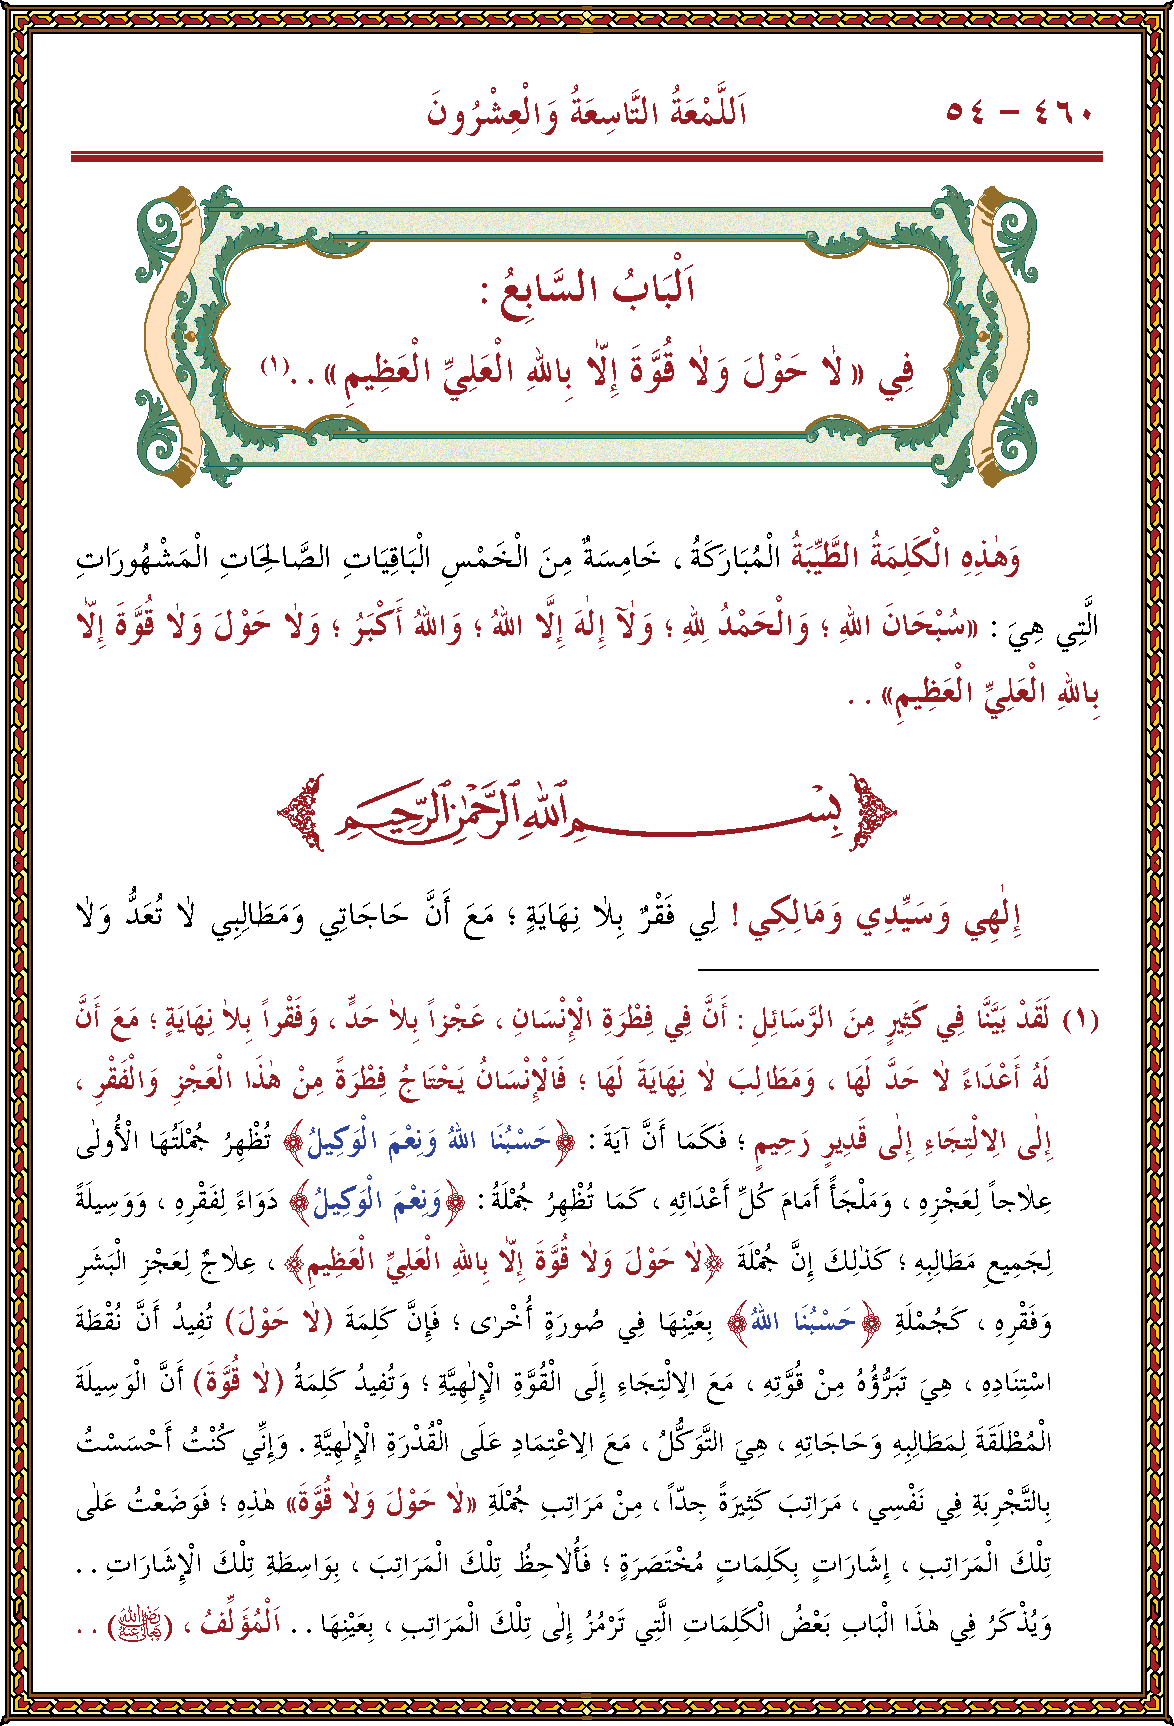 ٤٦٠ – ٥٤
اَللَّمْعَةُ التَّاسِعَةُ وَالْعِشْرُونَ
اَلْبَابُ السَّابِعُ :
فِي « لٰا حَوْلَ وَلٰا قُوَّةَ إِلّٰا بِاللهِ الْعَلِيِّ الْعَظِيمِ» . .(١)
وَهٰذِهِ الْكَلِمَةُ الطَّيِّبَةُ الْمُبَارَكَةُ ، خَامِسَةٌ مِنَ الْخَمْسِ الْبَاقِيَاتِ الصَّالِحَاتِ الْمَشْهُورَاتِ
الَّتِي هِيَ : «سُبْحَانَ اللهِ ؛ وَالْحَمْدُ لِلهِ ؛ وَلٰآ إِلٰهَ إِلَّا اللهُ ؛ وَاللهُ أَكْبَرُ ؛ وَلٰا حَوْلَ وَلٰا قُوَّةَ إِلّٰا
بِاللهِ الْعَلِيِّ الْعَظِيمِ» . .
بِسْمِ اللهِ الرَّحْمٰنِ الرَّحِيمِ
إِلٰهِي وَسَيِّدِي وَمَالِكِي ! لِي فَقْرٌ بِلٰا نِهَايَةٍ ؛ مَعَ أَنَّ حَاجَاتِي وَمَطَالِبِي لٰا تُعَدُّ وَلٰا
(١) لَقَدْ بَيَّنَّا فِي كَثِيرٍ مِنَ الرَّسَائِلِ : أَنَّ فِي فِطْرَةِ الْإِنْسَانِ ، عَجْزاً بِلٰا حَدٍّ ، وَفَقْراً بِلٰا نِهَايَةٍ ؛ مَعَ أَنَّ
لَهُ أَعْدَاءً لٰا حَدَّ لَهَا ، وَمَطَالِبَ لٰا نِهَايَةَ لَهَا ؛ فَالْإِنْسَانُ يَحْتَاجُ فِطْرَةً مِنْ هٰذَا الْعَجْزِ وَالْفَقْرِ ،
إِلٰى الِالْتِجَاءِ إِلٰى قَدِيرٍ رَحِيمٍ ؛ فَكَمَا أَنَّ آيَةَ : ﴿حَسْبُنَا اللهُ وَنِعْمَ الْوَكِيلُ﴾ تُظْهِرُ جُمْلَتُهَا الْأُولٰى
عِلٰاجاً لِعَجْزِهِ ، وَمَلْجَأً أَمَامَ كُلِّ أَعْدَائِهِ ، كَمَا تُظْهِرُ جُمْلَةُ : ﴿وَنِعْمَ الْوَكِيلُ﴾ دَوَاءً لِفَقْرِهِ ، وَوَسِيلَةً
لِجَمِيعِ مَطَالِبِهِ ؛ كَذٰلِكَ إِنَّ جُمْلَةَ ﴿لٰا حَوْلَ وَلٰا قُوَّةَ إِلّٰا بِاللهِ الْعَلِيِّ الْعَظِيمِ﴾ ، عِلٰاجٌ لِعَجْزِ الْبَشَرِ
وَفَقْرِهِ ، كَجُمْلَةِ ﴿حَسْبُنَا اللهُ﴾ بِعَيْنِهَا فِي صُورَةٍ أُخْرٰى ؛ فَإِنَّ كَلِمَةَ (لٰا حَوْلَ) تُفِيدُ أَنَّ نُقْطَةَ
اسْتِنَادِهِ ، هِيَ تَبَرُّؤُهُ مِنْ قُوَّتِهِ ، مَعَ الِالْتِجَاءِ إِلَى الْقُوَّةِ الْإِلٰهِيَّةِ ؛ وَتُفِيدُ كَلِمَةُ (لٰا قُوَّةَ) أَنَّ الْوَسِيلَةَ
الْمُطْلَقَةَ لِمَطَالِبِهِ وَحَاجَاتِهِ ، هِيَ التَّوَكُّلُ ، مَعَ الِاعْتِمَادِ عَلَى الْقُدْرَةِ الْإِلٰهِيَّةِ . وَإِنِّي كُنْتُ أَحْسَسْتُ
بِالتَّجْرِبَةِ فِي نَفْسِي ، مَرَاتِبَ كَثِيرَةً جِدّاً ، مِنْ مَرَاتِبِ جُمْلَةِ «لٰا حَوْلَ وَلٰا قُوَّةَ» هٰذِهِ ؛ فَوَضَعْتُ عَلٰى
تِلْكَ الْمَرَاتِبِ ، إِشَارَاتٍ بِكَلِمَاتٍ مُخْتَصَرَةٍ ؛ فَأُلٰاحِظُ تِلْكَ الْمَرَاتِبَ ، بِوَاسِطَةِ تِلْكَ الْإِشَارَاتِ . .
وَيُذْكَرُ فِي هٰذَا الْبَابِ بَعْضُ الْكَلِمَاتِ الَّتِي تَرْمُزُ إِلٰى تِلْكَ الْمَرَاتِبِ ، بِعَيْنِهَا . . اَلْمُؤَلِّفُ ، (رضي الله تعالى عنه) . .